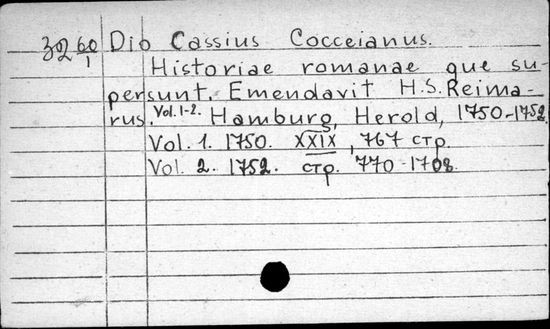 39 60/1 Dio Cassius Cocceianus.
Historiae romanae que su-
persunt. Emendavit H.S. Reima-
rus. Vol. 1-2. Hamburg, Herold, 1750-1752.
Vol. 1. 1750. XXIX, 767 стр.
Vol. 2. 1752. стр. 770-1708.